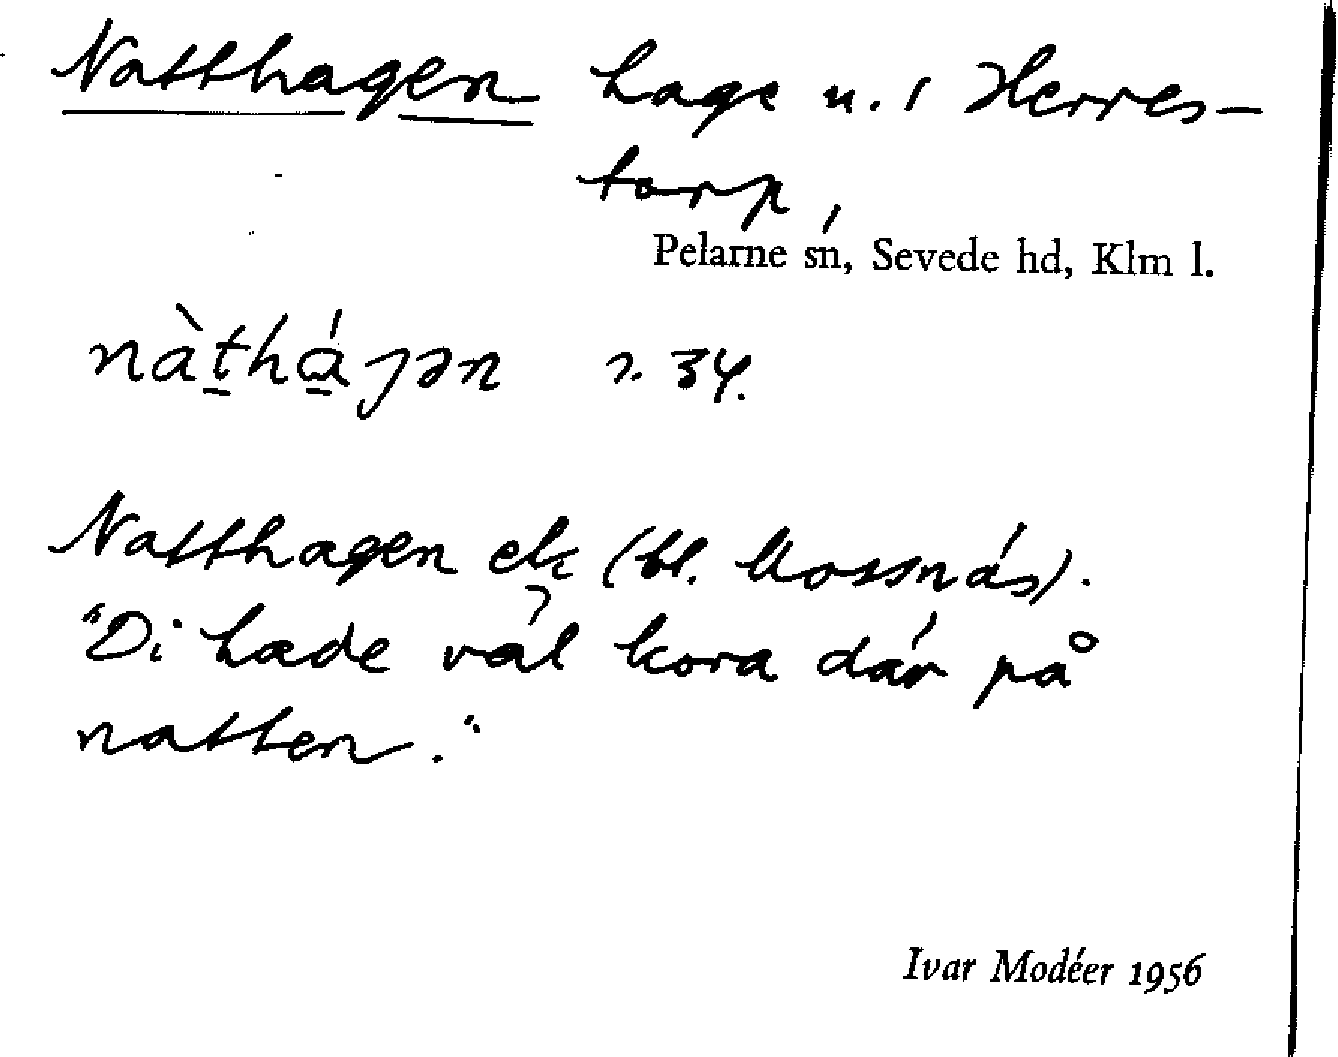 Natthagen hage u. i Herres-
torp,
Pelarne sn, Sevede hd, Klm l.
nàt̲há̲ȷən s. 34.
Natthagen ek (bl. Mossnäs).
"Di hade väl kora där på
natten."
Ivar Modéer 1956